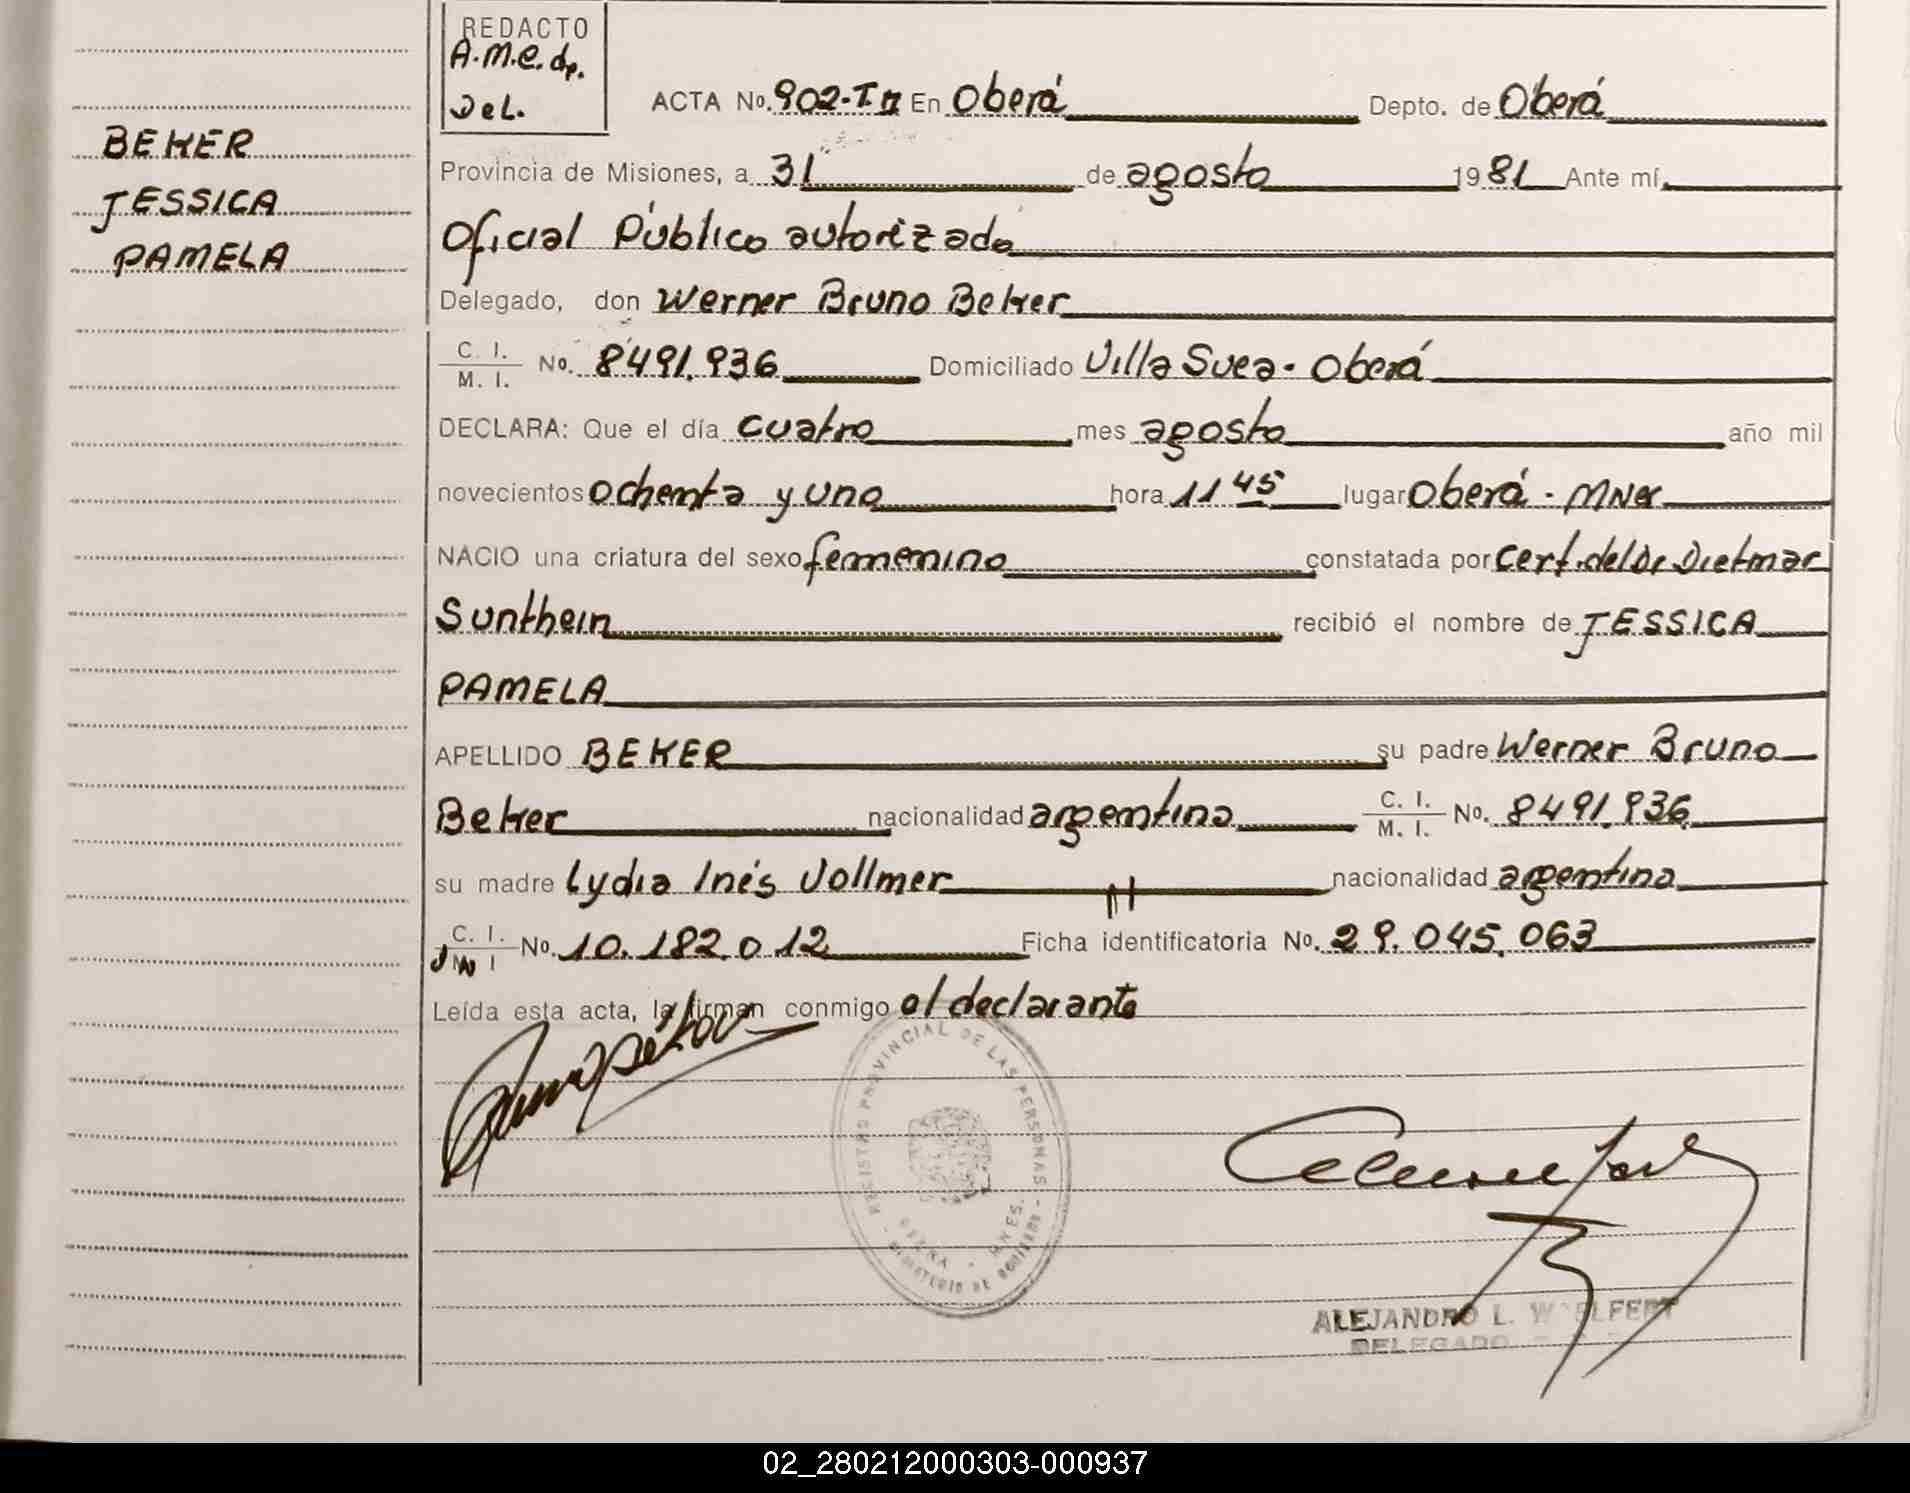 REDACTO
A.M.C. dp.
Del.
BEKER
JESSICA
PAMELA
ACTA No. 902-T II En Oberá Depto. de Oberá
Provincia de Misiones, a 31 de agosto 1981 Ante mí,
Oficial Público autorizado
Delegado, don Werner Bruno Beker
C. I. M. I. No. 8491.936 Domiciliado Villa Svea - Oberá
DECLARA: Que el día cuatro mes agosto año mil
novecientos ochenta y uno hora 11 45 lugar Oberá - Mnes
NACIO una criatura del sexo femenino constatada por Cert. del Dr Dietmar
Sunthein recibió el nombre de JESSICA
PAMELA
APELLIDO BEKER su padre Werner Bruno
Beker nacionalidad argentina C. I. M. I. No. 8491.936
su madre Lydia Inés Vollmer nacionalidad argentina
C. I. No. 10.182.012 Ficha identificatoria No. 29.045.063
Leída esta acta, la firman conmigo el declarante
REGISTRO PROVINCIAL DE LAS PERSONAS
OBERA - MNES.
MINISTERIO DE GOBIERNO
ALEJANDRO L. WOELFERT
DELEGADO
02_280212000303-000937